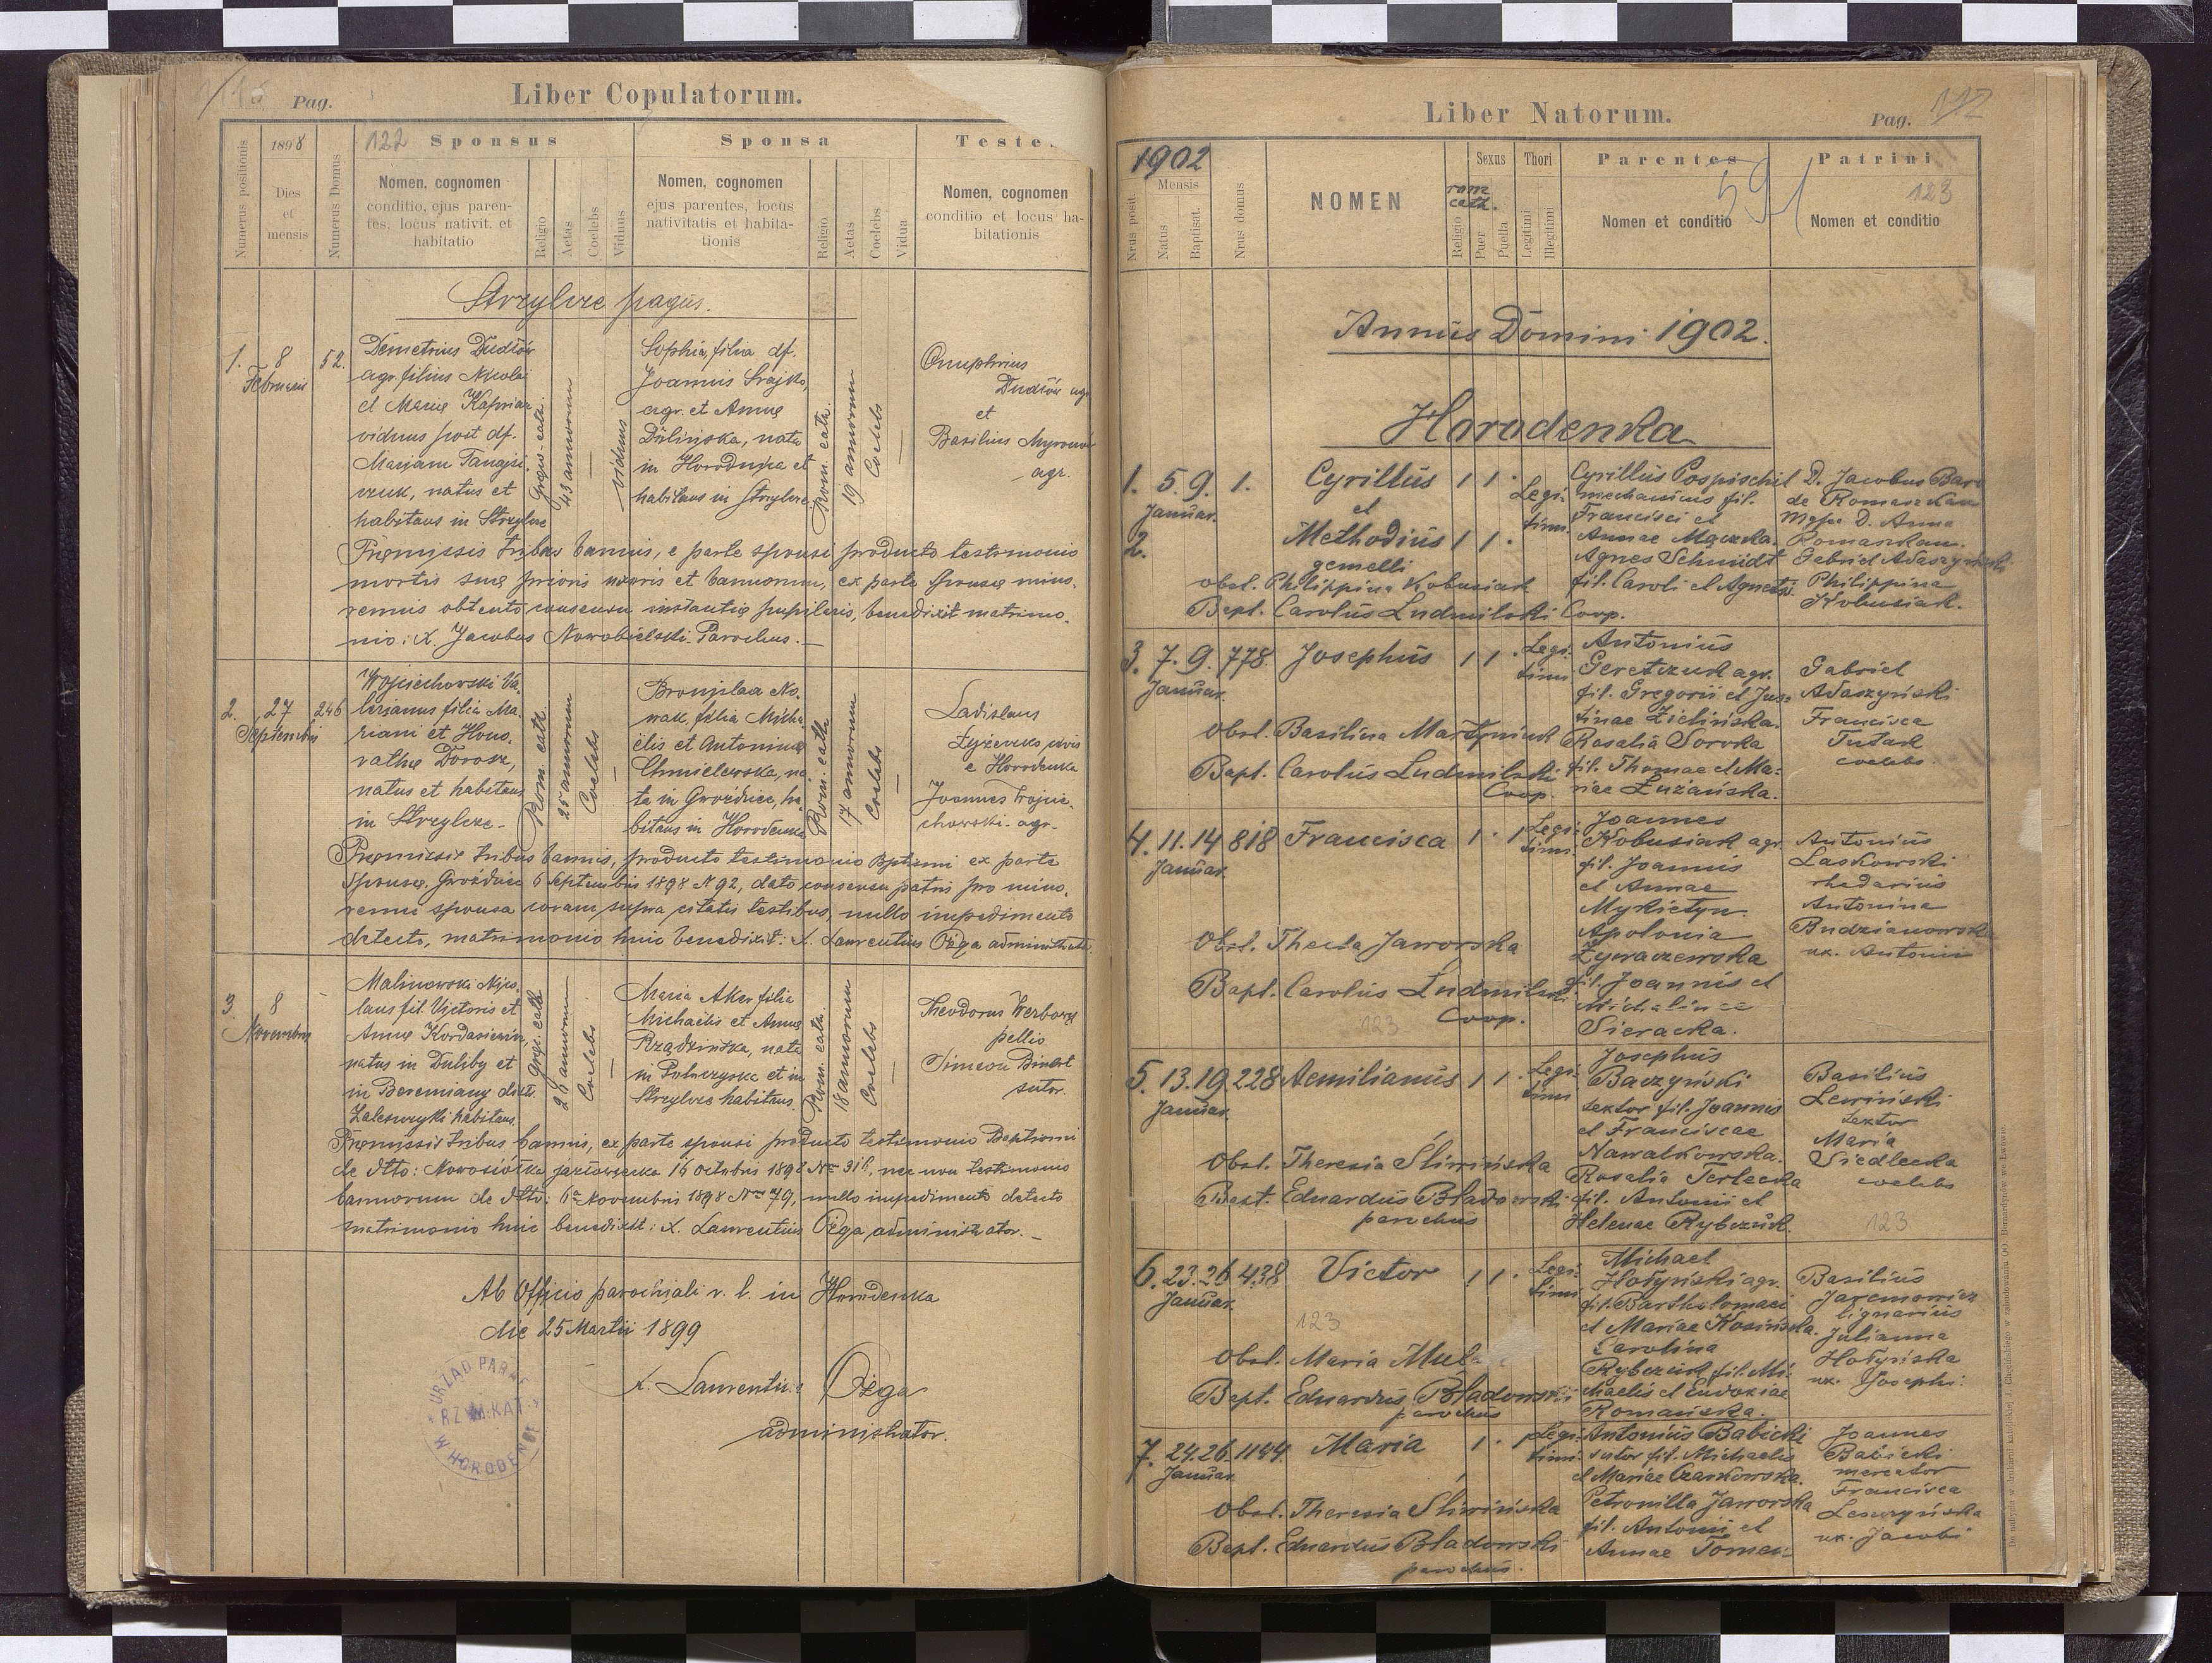 Pag.
Liber Copulatorum.
Numerus positionis
1898
Dies
et
mensis
Numerus Domus
122 Sponsus
Nomen, cognomen
conditio, ejus paren-
tes, locus nativit. et
habitatio
Religio
Aetas
Coelebs
Viduus
Sponsa
Nomen, cognomen
ejus parentes, locus
nativitatis et habita-
tionis
Religio
Aetas
Coelebs
Vidua
Teste
Nomen, cognomen
conditio et locus ha-
bitationis
Strzylcze pagus.
1. 8
Februarii
52.
Demetrius Dudiów
agr. filius Nicolai
et Mariæ
viduus post df.
Mariam
natus et
habitans in Strzylcze
Græco-cath.
43 annorum
viduus
Sophia, filia df.
Joannis
agr. et Annæ
nata
in et
habitans in Strzylcze
Rom. cath.
19 annorum
Coelebs
Onuphrius
Dudiów agr.
et
Basilius
agr.
Præmissis tribus bannis, e parte sponsi producto testimonio
mortis suæ prioris uxoris et bannorum, ex parte sponsæ mino-
rennis obtento consensu instantiæ pupilaris, benedixit matrimo-
nio: X. Jacobus Nowobielski Parochus.
2. 27
Septembris
246
Wojciechowski Va-
lerianus filius Ma-
riani et Hono-
rathæ Dorosz,
natus et habitans
in Strzylcze
Rom. cath.
25 annorum
Coelebs
Bronislaa No-
wak, filia Micha-
ëlis et Antoninæ
Chmielewska, na-
ta in Gwoździec, ha-
bitans in Horodenka
Rom. cath.
17 annorum
Coelebs
Ladislaus
civis
e Horodenka
Joannes Wojcie-
chowski agr.
Præmissis tribus bannis, producto testimonio Bptismi ex parte
Sponsæ, Gwoździec 6 Septembris 1898 N 92, dato consensu patris pro mino-
renni sponsa coram supra citatis testibus, nullo impedimento
detecto, matrimonio huic benedixit: X. Laurentius Ożga administrator
3. 8
Novembris
Malinowski Nico-
laus fil. Victoris et
Annæ Kordasiewicz,
natus in Duliby et
in Beremiany distr.
Zaleszczyki habitans.
Græc. cath.
26 annorum
Coelebs
Maria Aker filia
Michaëlis et Annæ
Rządzińska, nata
in et in
Strzylcze habitans.
Rom. cath.
18 annorum
Coelebs
Theodorus Werbowy
pellio
Simeon
sutor.
Præmissis tribus bannis, ex parte sponsi producto testimonio Baptismi
de dtto: Nowosiółka jazłowiecka 16 Octobris 1898 Nr 318, nec non testimonio
bannorum de dtto: 6 Novembris 1898 Nro 79, nullo impedimento detecto
matrimonio huic benedixit: X. Laurentius Ożga administrator.
Ab Officio parochiali r. l. in Horodenka
die 25 Martii 1899
X. Laurentius Ożga
administrator.
URZĄD PARAF
RZYM.KAT
W HORODENCE
Liber Natorum.
Pag. 112
1902
Nrus posit.
Mensis
Natus
Baptisat.
Nrus domus
NOMEN
rom.
cath.
Religio
Sexus
Puer
Puella
Thori
Legitimi
Illegitimi
Parentes
Nomen et conditio
591
Patrini
123
Nomen et conditio
Annus Domini 1902.
Horodenka
1. 5. 9. 1.
Januar.
2.
Cyrillus
et
Methodius
gemelli
Legi-
timi
Cyrillus Pospischil
mechanicus fil.
Francisci et
Annae Mączka.
Agnes Schmidt
fil. Caroli et Agnetis
D. Jacobus Baro
de Romaszkan
D. Anna
Romaszkan.
Gabriel Adaszyński
Philippina
Kobusiak.
obst. Philippina Kobusiak
Bapt. Carolus Ludmilski Coop.
3. 7. 9. 778.
Januar.
Josephus
Legi-
timi
Antonius
Geretczuk agr.
fil. Gregorii et Jus-
tinae Zielińska.
Rosalia Soroka
fil. Thomae et Ma-
riae Łużańska.
Gabriel
Adaszyński
Francisca
Tutak
coelebs
Obst. Basilina Martyniuk
Bapt. Carolus Ludmilski
Coop.
4. 11. 14 818
Januar.
Francisca
Legi-
timi
Joannes
Kobusiak agr.
fil. Joannis
et Annae
Mykietyn.
Apolonia
Żywaczewska
fil. Joannis et
Michalinae
Sieracka.
Antonius
Laskowski
rhedarius
Antonina
Budzianowska
ux. Antonii
Obst. Thecla Jaworska
Bapt. Carolus Ludmilski
123 Coop.
5. 13. 19. 228
Januar.
Aemilianus
Legi-
timi
Josephus
Baczyński
textor fil. Joannis
et Franciscae
Nawalkowska.
Rosalia Terlecka
fil. Antonii et
Helenae Rybczuk.
Basilius
Lewiński
textor
Maria
Siedlecka
coelebs
123
Obst. Theresia Śliwińska
Bapt. Eduardus Bładowski
parochus
6. 23. 26 438
Januar.
Victor
123
Legi-
timi
Michael
Hołyński agr.
fil. Bartholomaei
et Mariae Kosińska.
Carolina
Rybczuk fil. Mi-
chaelis et Eudokiae
Romańska.
Basilius
Jaremowicz
lignarius
Julianna
Hołyńska
ux. Josephi.
Obst. Maria
Bapt. Eduardus Bładowski
parochus
7. 24. 26. 1144.
Januar.
Maria
Legi-
timi
Antonius Babicki
sutor fil. Michaelis
et Mariae Czarkowska.
Petronilla Jaworska
fil. Antonii et
Annae
Joannes
Babicki
mercator
Francisca
Leszczyńska
ux. Jacobi
Obst. Theresia Śliwińska
Bapt. Eduardus Bładowski
parochus.